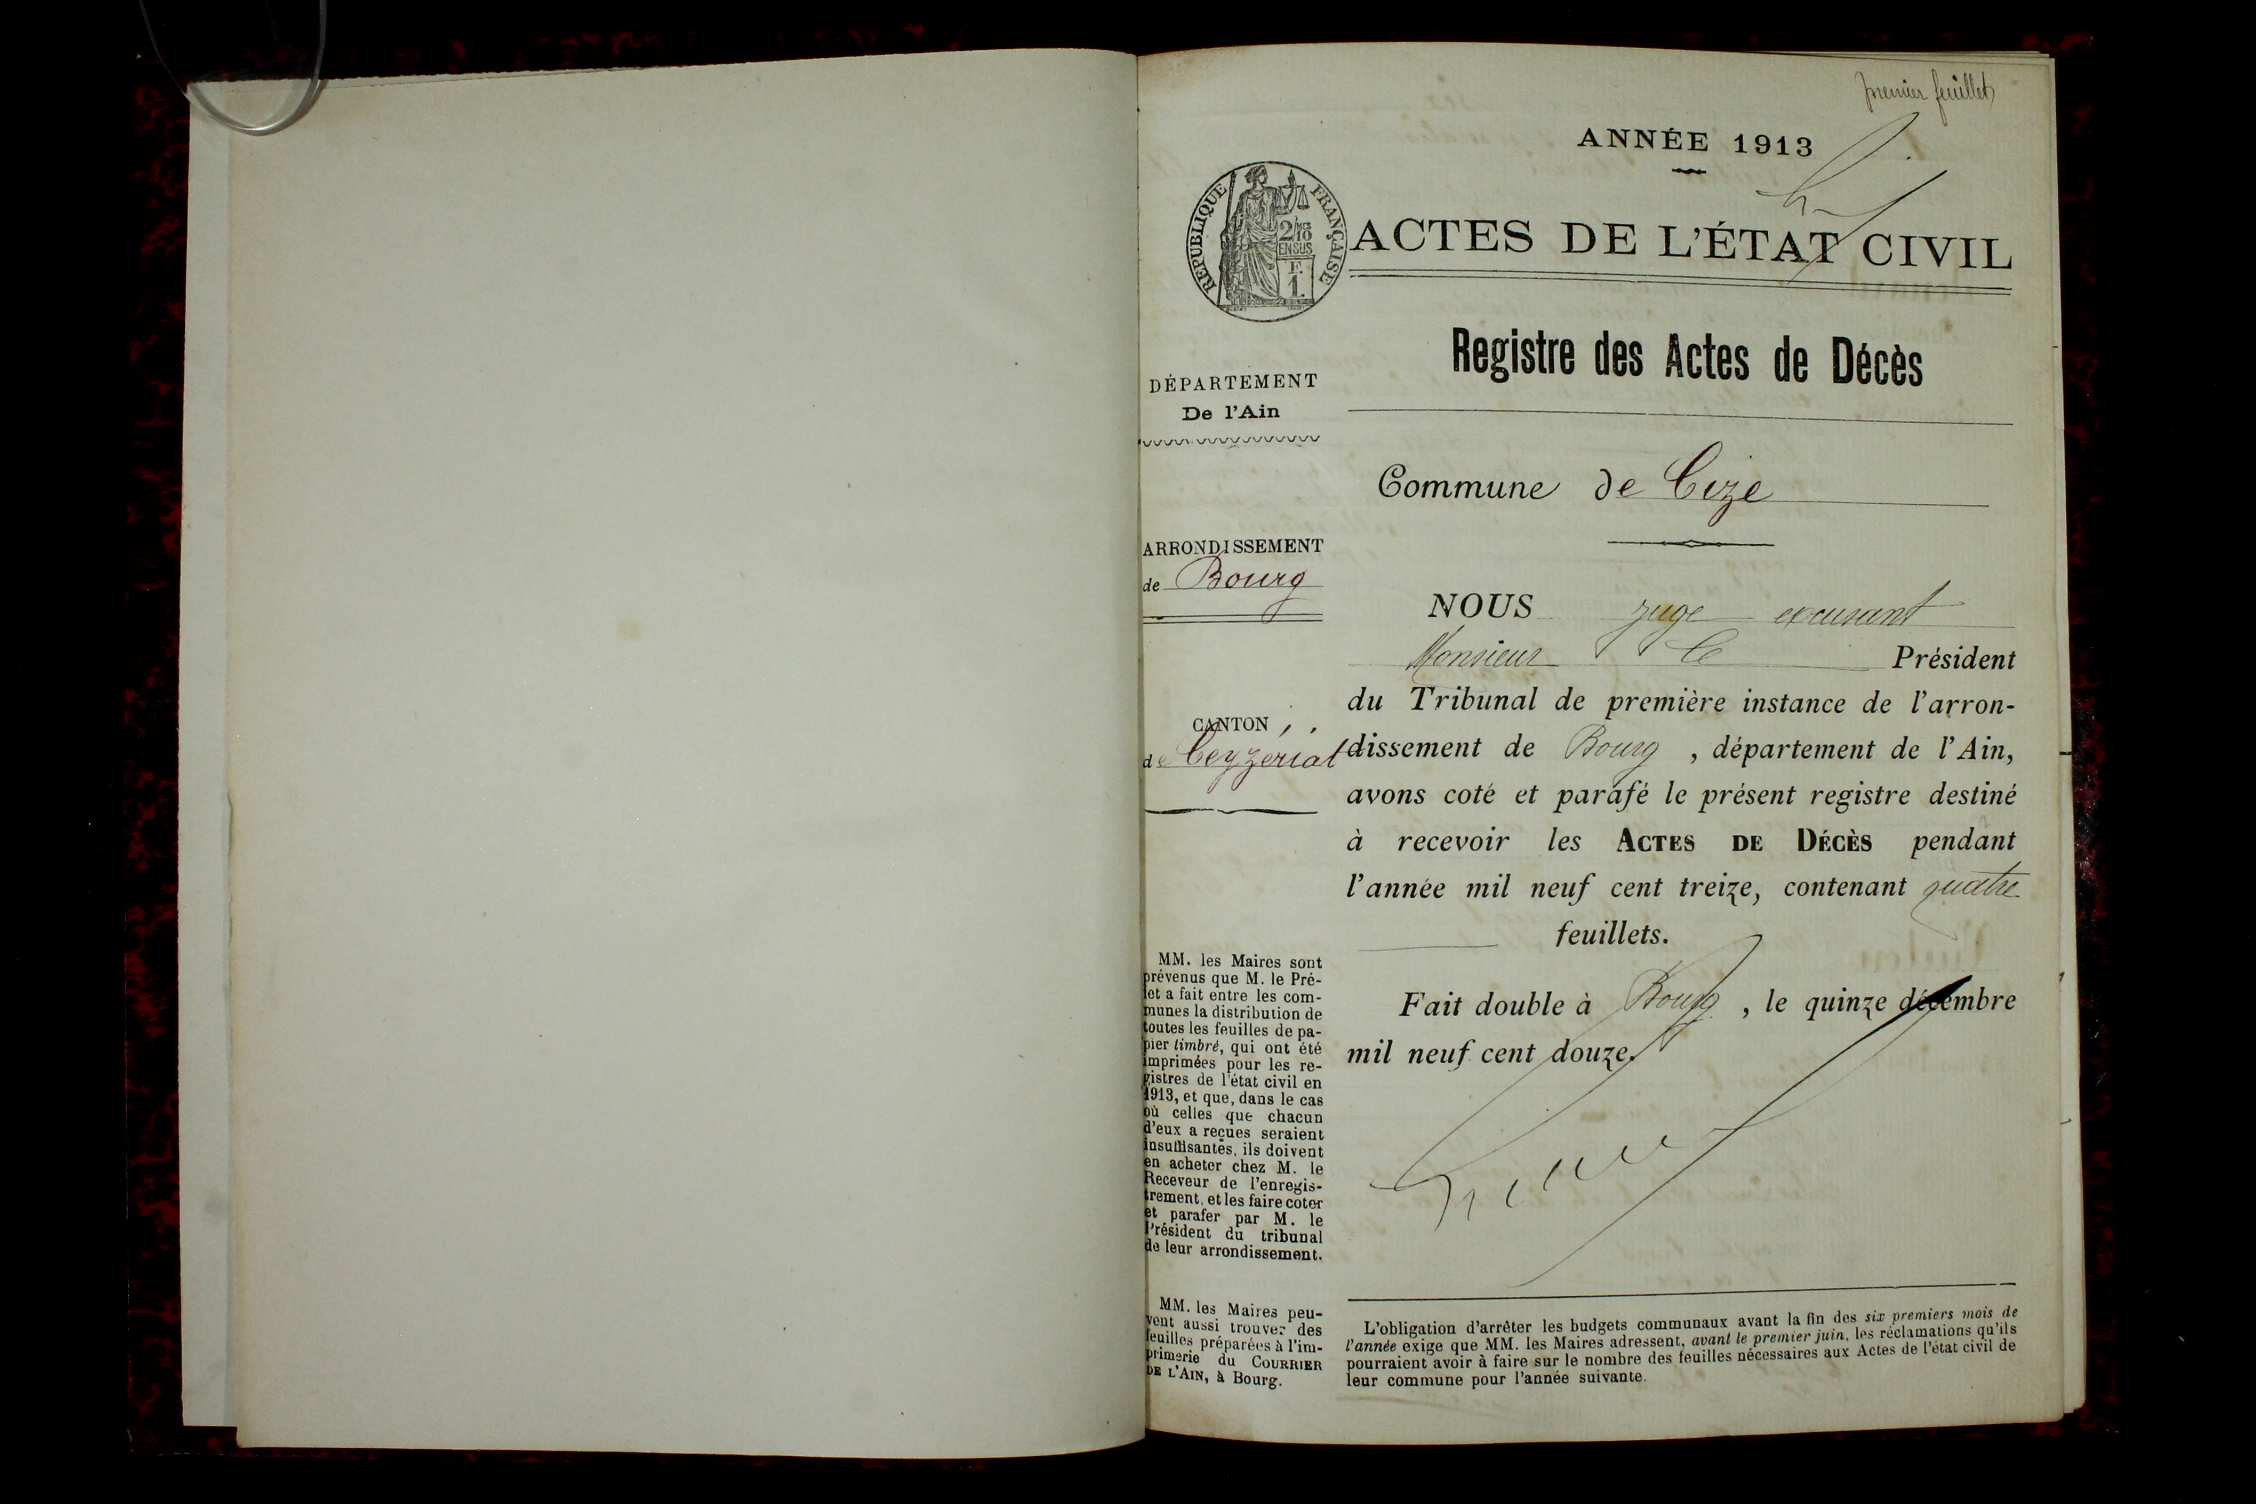 premier feuillet
ANNÉE 1913
RÉPUBLIQUE FRANÇAISE
2/10
EN SUS
F.
1.
ACTES DE L'ÉTAT CIVIL
Registre des Actes de Décès
DÉPARTEMENT
De l'Ain
Commune de Cize
ARRONDISSEMENT
de Bourg
CANTON
de Ceyzériat
NOUS juge excusant
Monsieur le Président
du Tribunal de première instance de l'arron-
dissement de Bourg, département de l'Ain,
avons coté et parafé le présent registre destiné
à recevoir les ACTES DE DÉCÈS pendant
l'année mil neuf cent treize, contenant quatre
feuillets.
Fait double à Bourg, le quinze décembre
mil neuf cent douze.
MM. les Maires sont
prévenus que M. le Pré-
fet a fait entre les com-
munes la distribution de
toutes les feuilles de pa-
pier timbré, qui ont été
imprimées pour les re-
gistres de l'état civil en
1913, et que, dans le cas
où celles que chacun
d'eux a reçues seraient
insuffisantes, ils doivent
en acheter chez M. le
Receveur de l'enregis-
trement, et les faire coter
et parafer par M. le
Président du tribunal
de leur arrondissement.
MM. les Maires peu-
vent aussi trouver des
feuilles préparées à l'im-
primerie du COURRIER
DE L'AIN, à Bourg.
L'obligation d'arrêter les budgets communaux avant la fin des six premiers mois de
l'année exige que MM. les Maires adressent, avant le premier juin, les réclamations qu'ils
pourraient avoir à faire sur le nombre des feuilles nécessaires aux Actes de l'état civil de
leur commune pour l'année suivante.